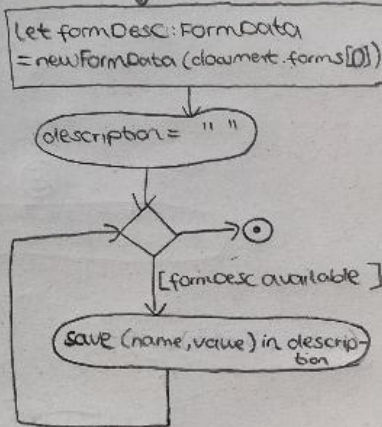 let formDesc: FormData
=newFormData(document.forms[0])
description= " "
[formDesc available]
save (name,value) in descrip-
tion